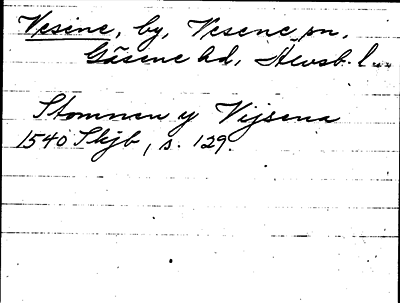 Vesene, by, Vesene sn,
Gäsene hd, Älvsb. l.
Stomnen y Vijsena
1540 Skjb, s. 129.